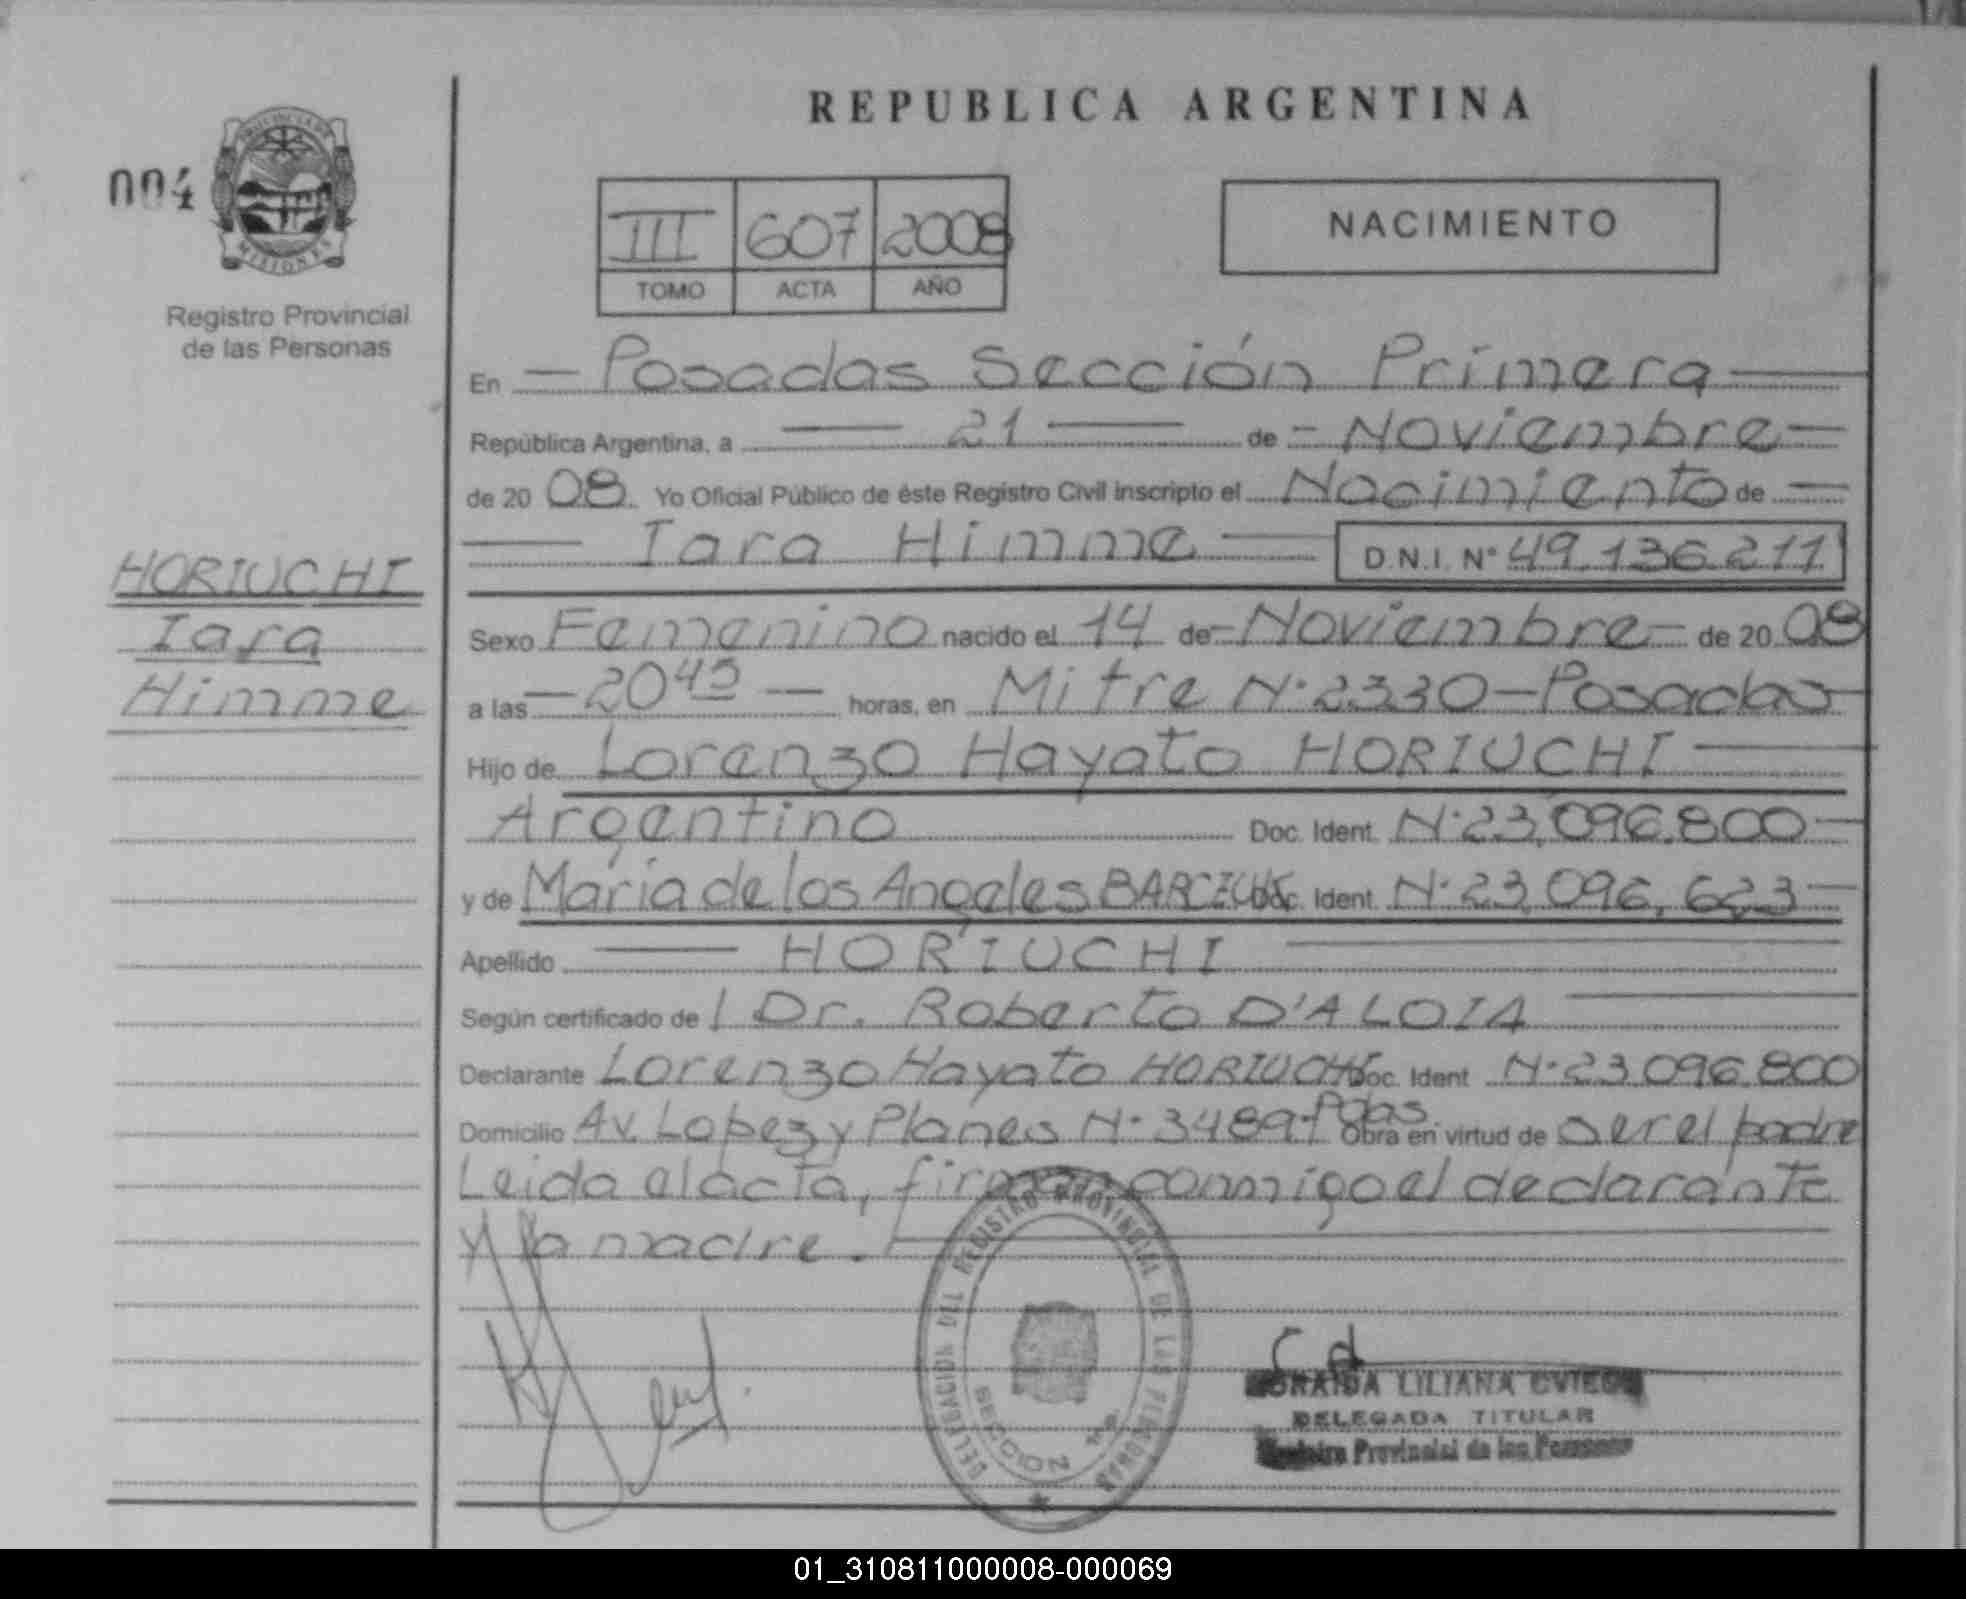 REPUBLICA ARGENTINA
004
PROVINCIA DE
MISIONES
Registro Provincial
de las Personas
III 607 2008
TOMO ACTA AÑO
NACIMIENTO
En — Posadas Sección Primera —
República Argentina, a — 21 — de - Noviembre —
de 20 08. Yo Oficial Público de éste Registro Civil inscripto el Nacimiento de —
— Iara Himme — D.N.I. N° 49.136.211
HORIUCHI
Iara
Himme
Sexo Femenino nacido el 14 de - Noviembre - de 20 08
a las — 20 45 — horas, en Mitre N° 2330 - Posadas
Hijo de Lorenzo Hayato HORIUCHI —
Argentino Doc. Ident. N° 23.096.800 —
y de Maria de los Angeles Doc. Ident. N° 23.096.623 —
Apellido — HORIUCHI —
Según certificado de Dr. Roberto D'ALOIA —
Declarante Lorenzo Hayato HORIUCHI Doc. Ident N° 23.096.800
Domicilio Av. Lopez y Planes N° 3489 - Pdas. Obra en virtud de ser el padre
Leida el acta, firman conmigo el declarante
y la madre. —
DELEGACION DEL REGISTRO PROVINCIAL DE LAS PERSONAS
SECCION 1ra.
LILIANA OVIEDO
DELEGADA TITULAR
Registro Provincial de las Personas
01_310811000008-000069